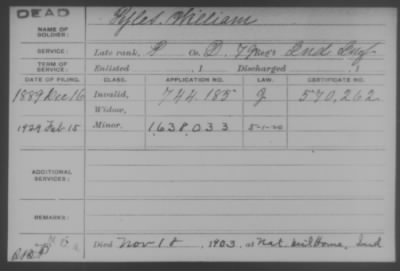 DEAD
NAME OF SOLDIER: William
SERVICE: Late rank, P Co. D, 7 Reg't Ind Inf
TERM OF SERVICE: Enlisted , 1 Discharged , 1
DATE OF FILING. CLASS. APPLICATION NO. LAW. CERTIFICATE NO.
1889 Dec 16 Invalid, 744.185 570,262
Widow,
1929 Feb 15 Minor, 1,638,033 5-1-20
ADDITIONAL SERVICES:
REMARKS:
Died Nov 18, 1903, at Nat. Mil Home, Ind